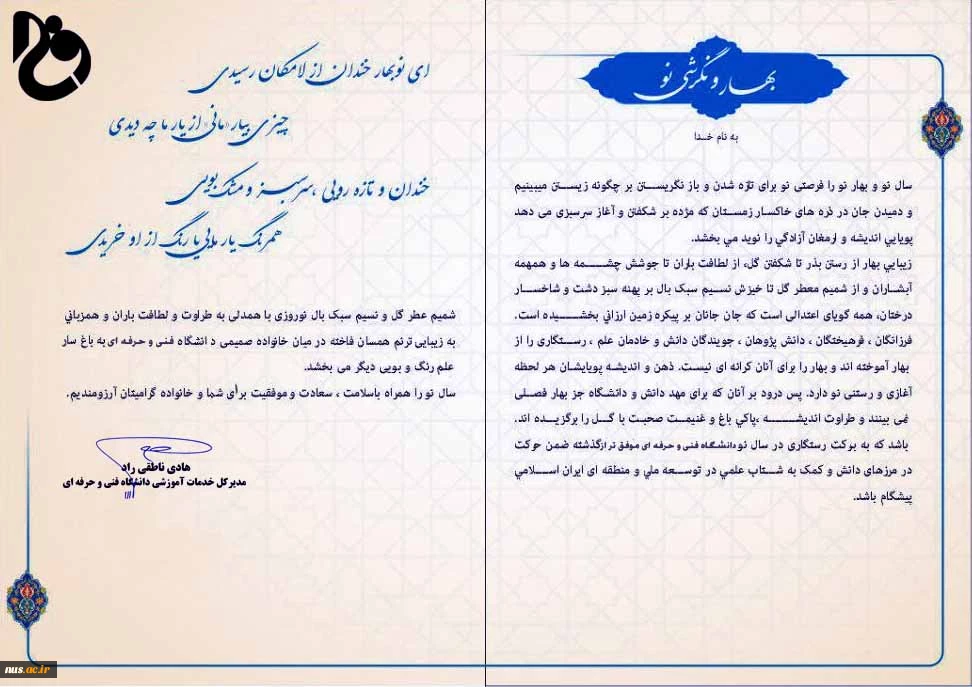 بهار و نگرشی نو
به نام خدا
سال نو و بهار نو را فرصتی نو برای تازه شدن و باز نگریستن بر چگونه زیستن میبینیم
و دمیدن جان در ذره های خاکسار زمستان که مژده بر شکفتن و آغاز سرسبزی می دهد
پویایي اندیشه و ارمغان آزادگي را نوید مي بخشد.
زیبایي بهار از رستن بذر تا شکفتن گل، از لطافت باران تا جوشش چشمه ها و همهمه
آبشاران و از شمیم معطر گل تا خیزش نسیم سبک بال بر پهنه سبز دشت و شاخسار
درختان، همه گویای اعتدالی است که جان جانان بر پیکره زمین ارزاني بخشیده است.
فرزانگان ، فرهیختگان ، دانش پژوهان ، جویندگان دانش و خادمان علم ، رستگاری را از
بهار آموخته اند و بهار را برای آنان کرانه ای نیست. ذهن و اندیشه پویایشان هر لحظه
آغازی و رستنی نو دارد. پس درود بر آنان که برای مهد دانش و دانشگاه جز بهار فصلی
نمی بینند و طراوت اندیشه ،پاکي باغ و غنیمت صحبت با گل را برگزیده اند.
باشد که به برکت رستگاری در سال نو دانشگاه فنی و حرفه ای موفق تر از گذشته ضمن حرکت
در مرزهای دانش و کمک به شتاب علمي در توسعه ملي و منطقه ای ایران اسلامي
پیشگام باشد.
ای نوبهار خندان از لامکان رسیدی
چیزی بیار «مانی» از یار ما چه دیدی
خندان و تازه رویی ، سرسبز و مشک بویی
همرنگ یار مایی یا رنگ از او خریدی
شمیم عطر گل و نسیم سبک بال نوروزی با همدلی به طراوت و لطافت باران و همزباني
به زیبایی ترنم همسان فاخته در میان خانواده صمیمی دانشگاه فنی و حرفه ای به باغ سار
علم رنگ و بویی دیگر می بخشد.
سال نو را همراه باسلامت ، سعادت و موفقیت برأی شما و خانواده گرامیتان آرزومندیم.
هادی ناطقی راد
مدیرکل خدمات آموزشی دانشگاه فنی و حرفه ای
nus.ac.ir